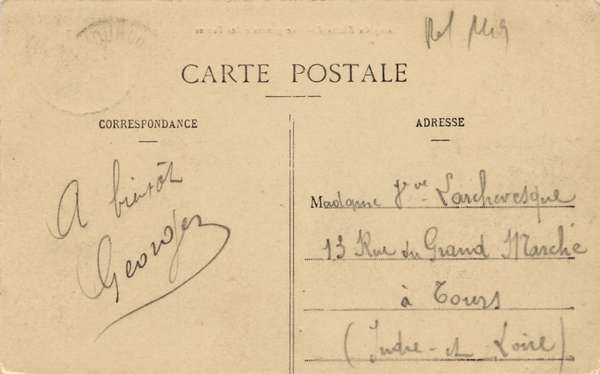 CARTE POSTALE
CORRESPONDANCE
ADRESSE
A bientôt
Georges
Madame Vve Larchevesque
13 Rue du Grand Marché
à Tours
(Indre-et-Loire)